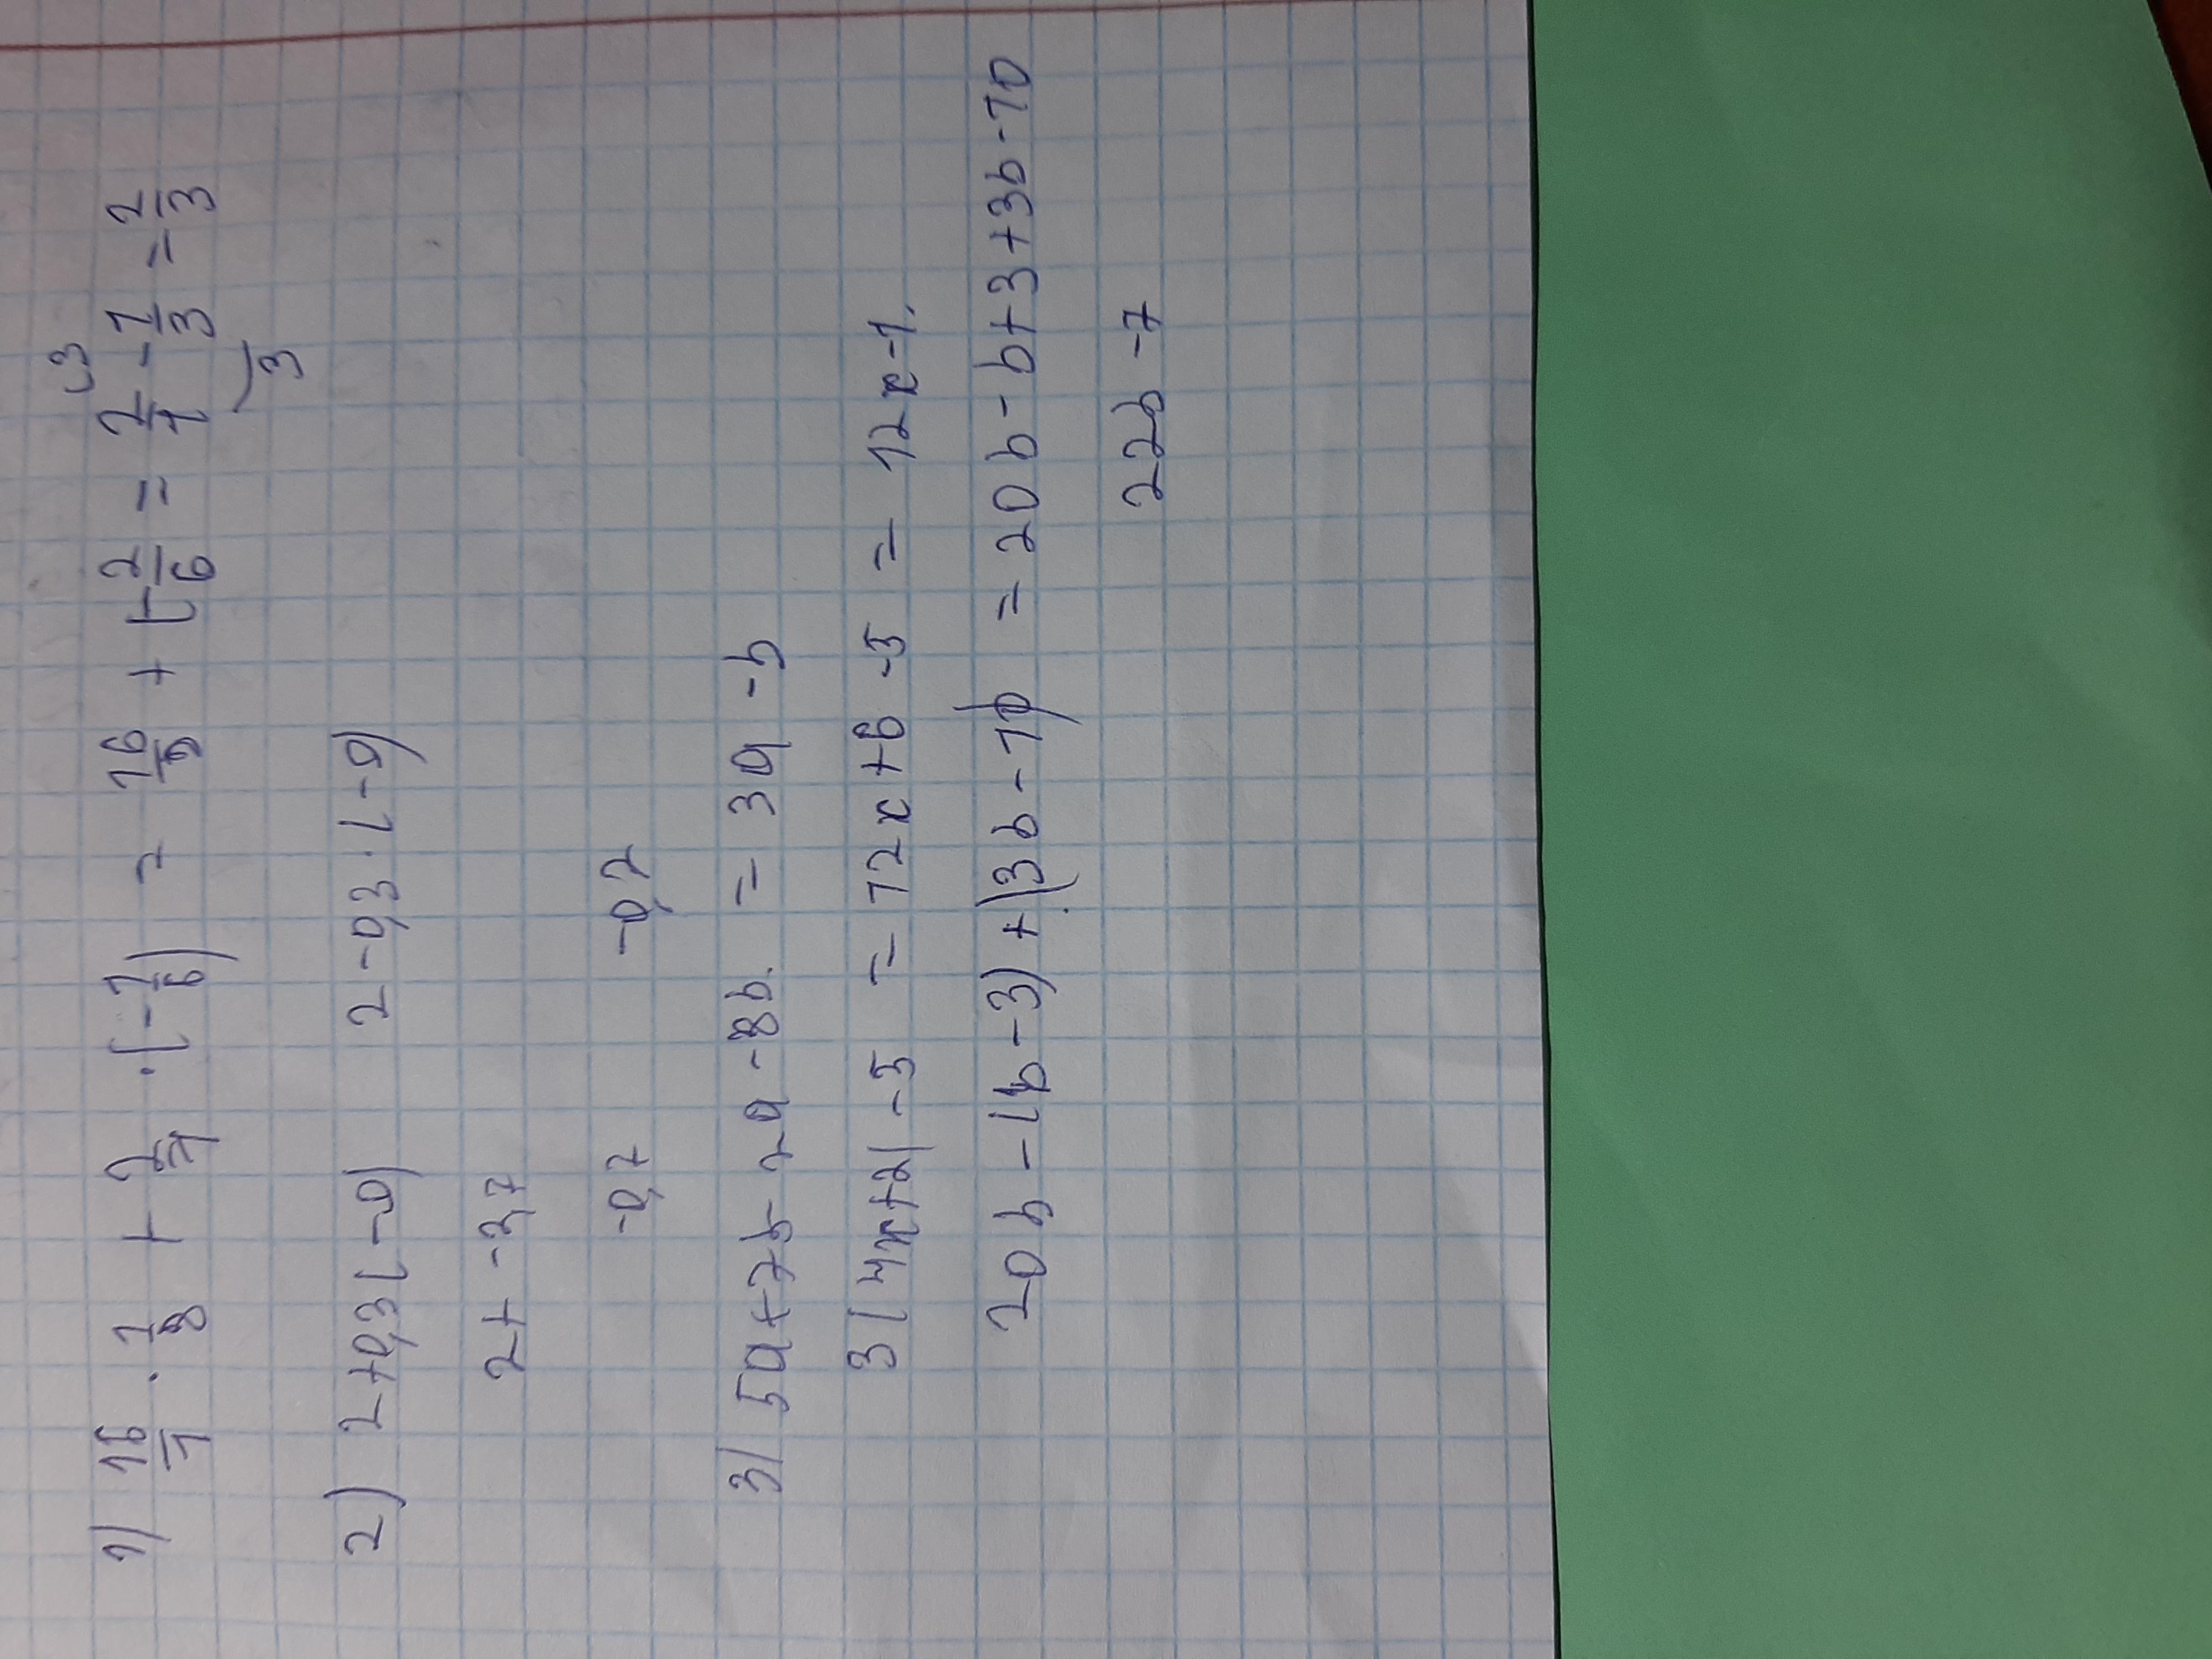 1) 16/1 · 1/8 + 2/1 · (-1/6) = 16/8 + (-2/6 = 2/1 - 1/3 = 2/3
3
2) 2+0,3(-9) 2-0,3·(-9)
2+ -3,7
-0,7 -0,2
3) 5a+7b-2a-8b. = 3a -b
3(4x+2)-5 = 12x+6-5 = 12x-1.
20b-(b-3)+(3b-10) = 20b-b+3+3b-10
22b-7